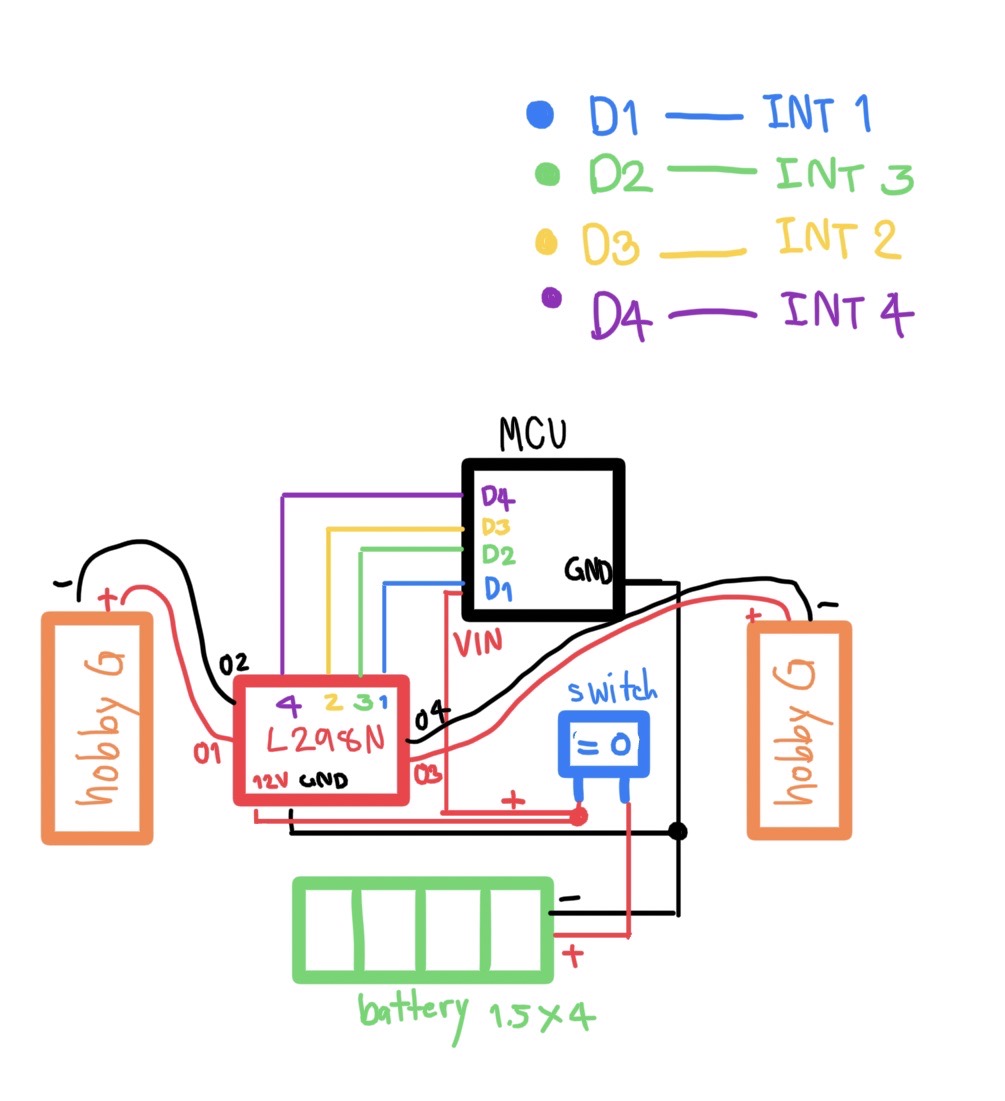 D1 — INT 1
D2 — INT 3
D3 — INT 2
D4 — INT 4
MCU
D4
D3
D2
D1
GND
VIN
- +
hobby G
02
01
4 2 3 1
L298N
12V GND
04
03
switch
= 0
+
+ -
hobby G
-
+
battery 1.5×4